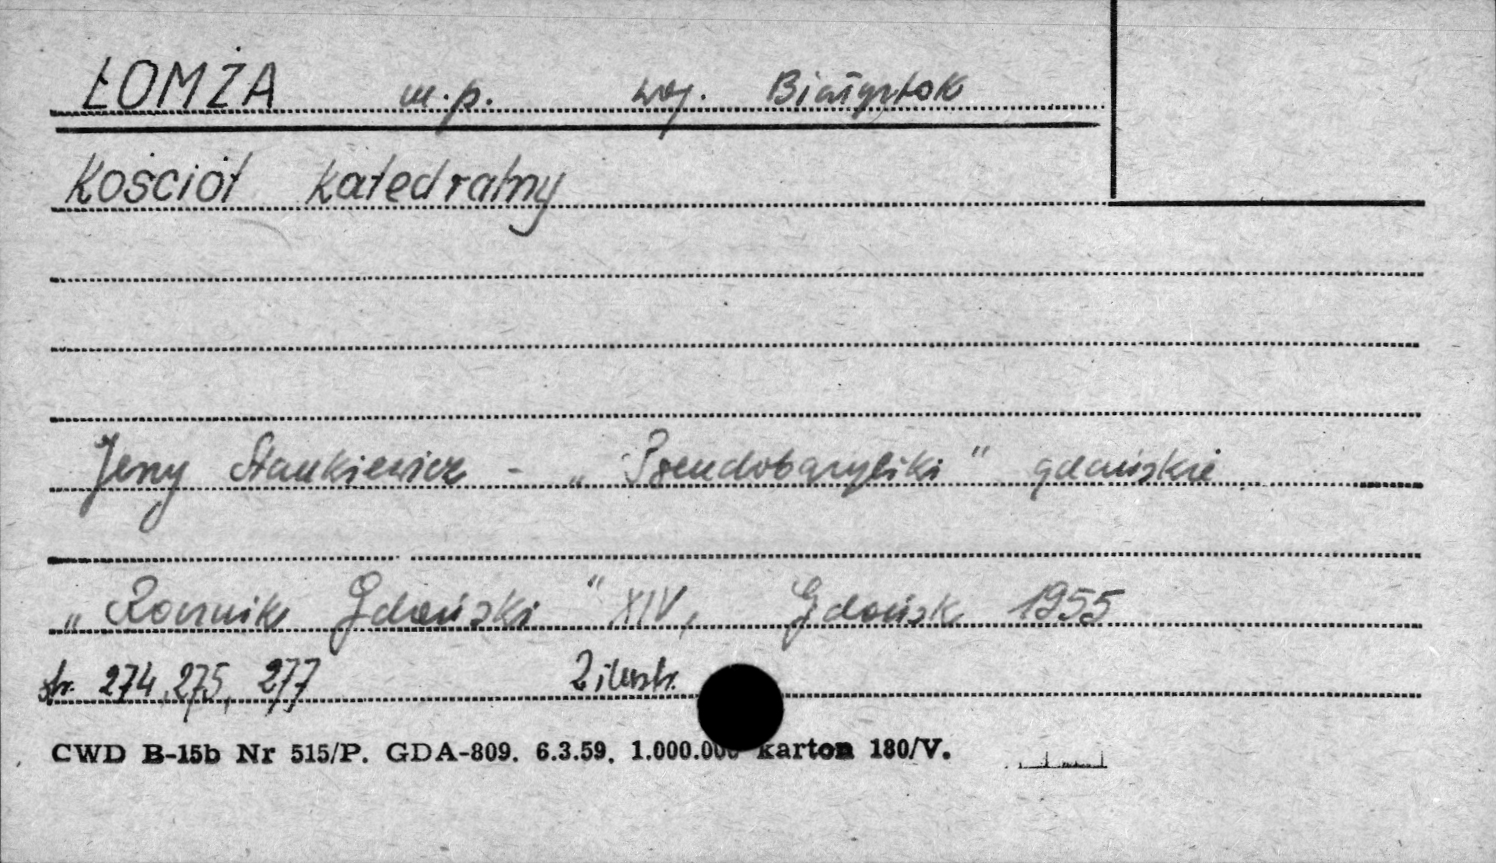 ŁOMŻA m.p. woj. Białystok
Kościół katedralny
Jerzy Stankiewicz - „Pseudobazyliki" gdańskie
„Rocznik Gdański" XIV, Gdańsk 1955
str. 274, 275, 277 2 ilustr.
CWD B-15b Nr 515/P. GDA-809. 6.3.59. 1.000.000 karton 180/V.